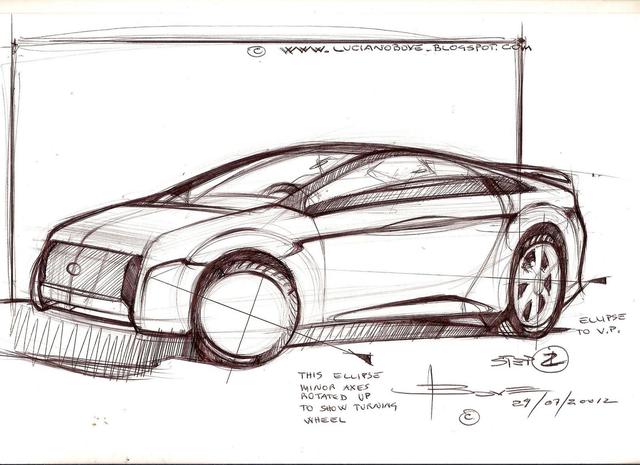 © WWW.LUCIANOBOVE.BLOGSPOT.COM
ELLIPSE
TO V.P.
STEP 2
THIS ELLIPSE
MINOR AXES
ROTATED UP
TO SHOW TURNING
WHEEL
Bove
©
29/07/2012